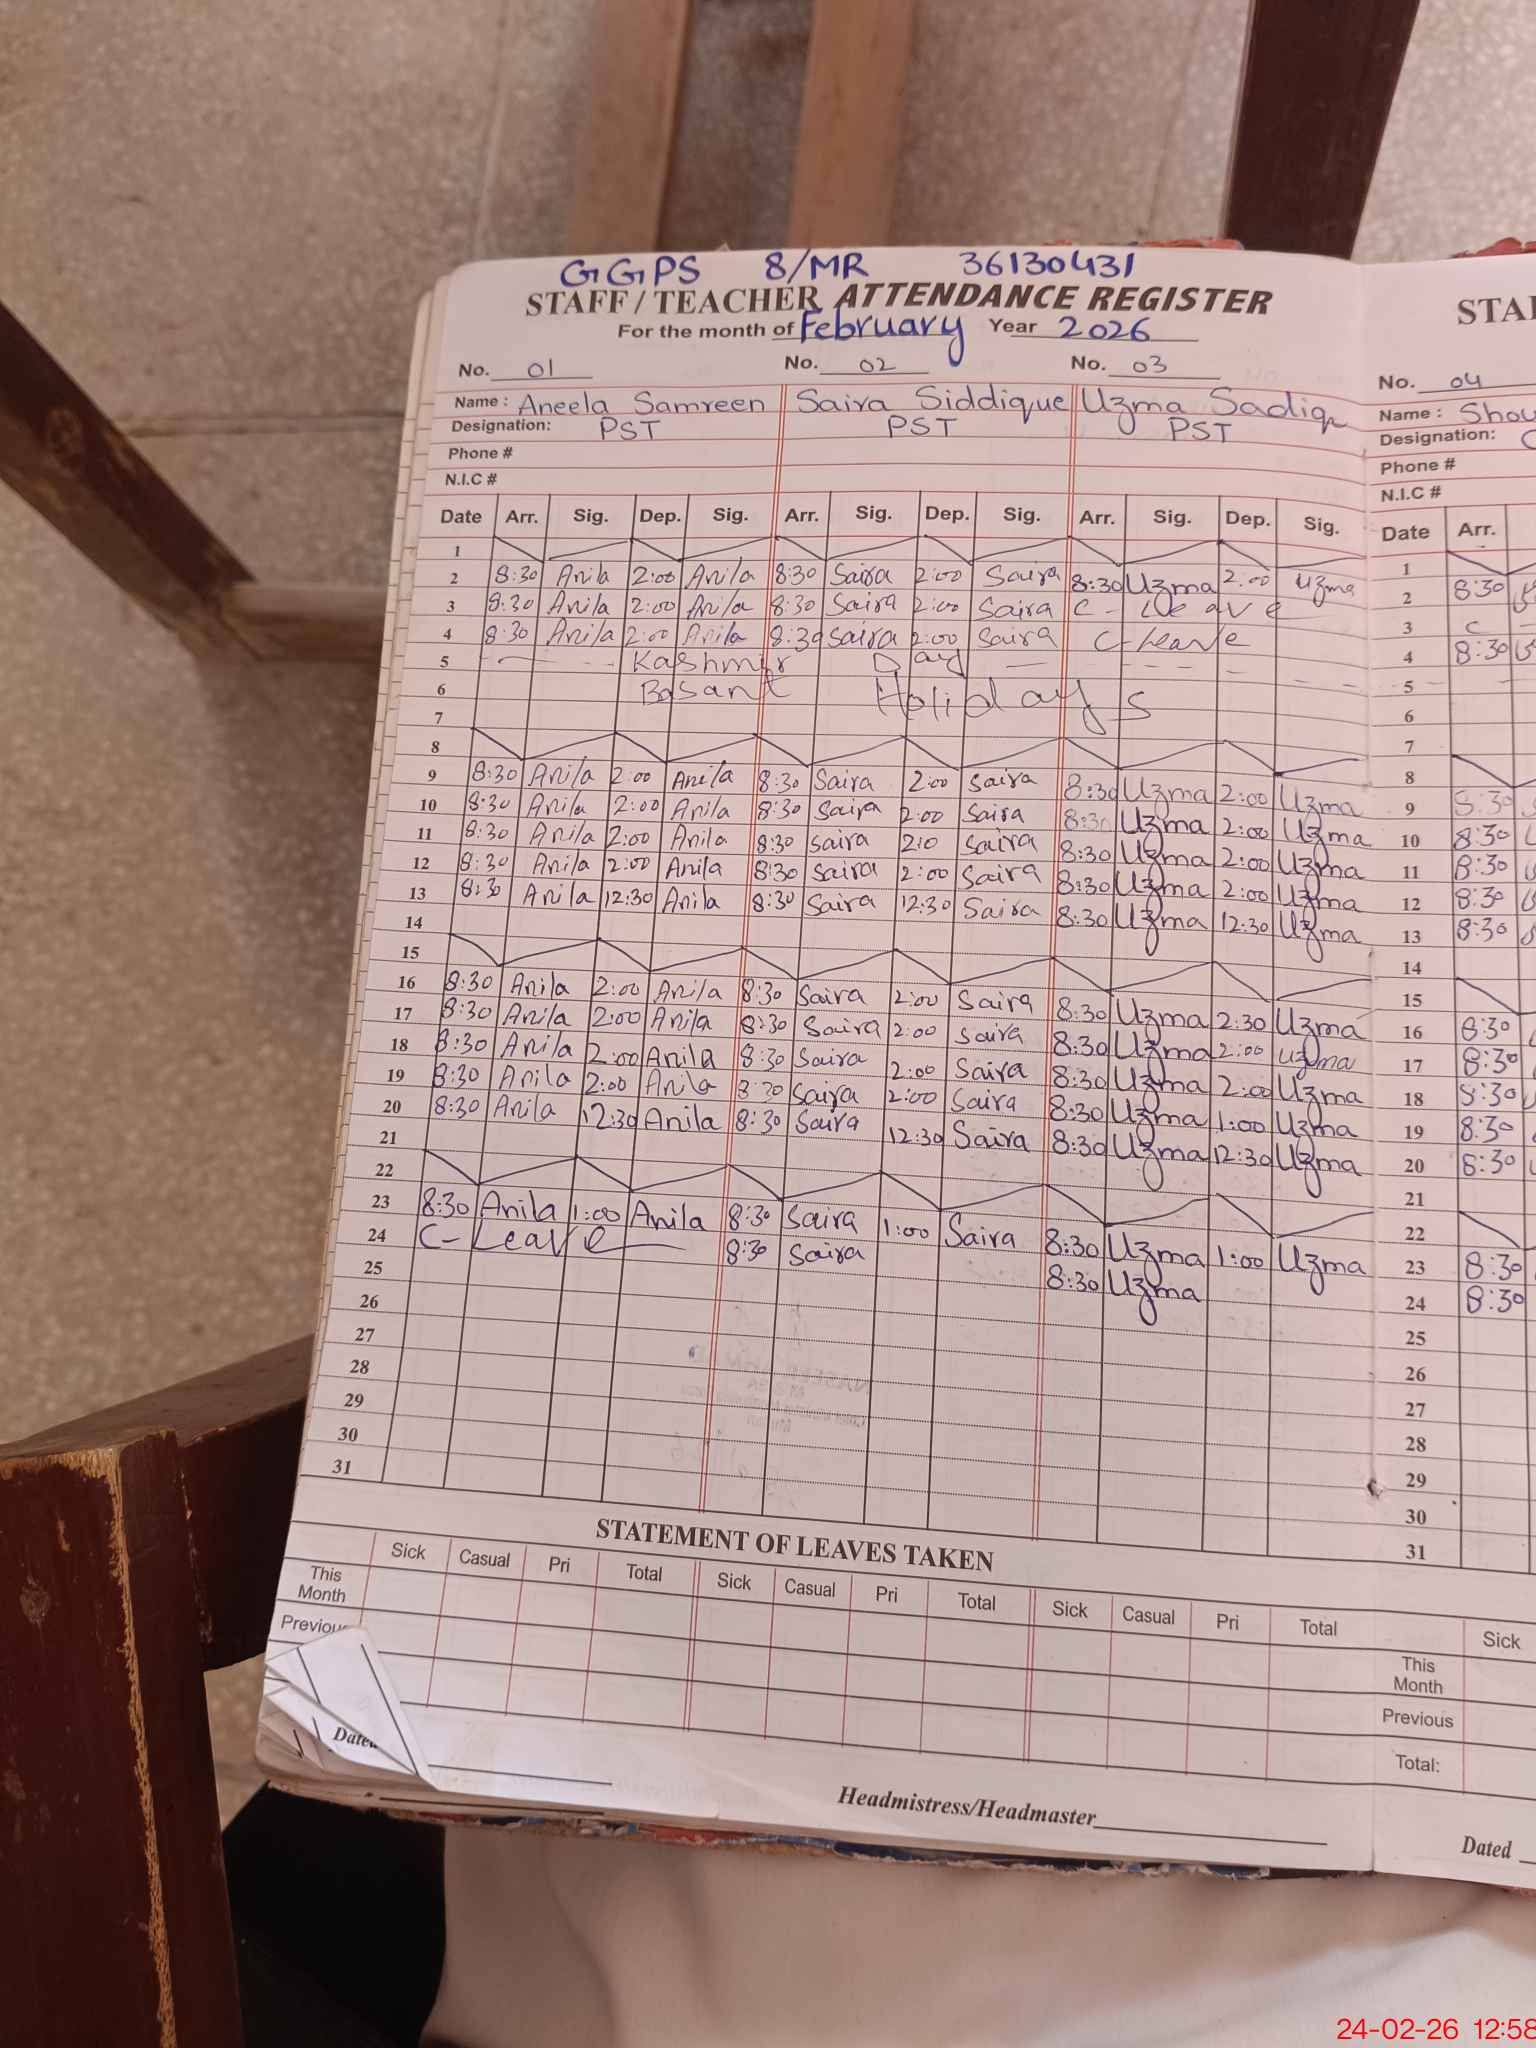 GGPS 8/MR 36130431
STAFF / TEACHER ATTENDANCE REGISTER
For the month of February Year 2026
No. 01 No. 02 No. 03
Name: Aneela Samreen Saira Siddique Uzma Sadiq
Designation: PST PST PST
Phone #
N.I.C #
Date Arr. Sig. Dep. Sig. Arr. Sig. Dep. Sig. Arr. Sig. Dep. Sig.
1
2 8:30 Anila 2:00 Anila 8:30 Saira 2:00 Saira 8:30 Uzma 2:00 Uzma
3 8:30 Anila 2:00 Anila 8:30 Saira 2:00 Saira C- Leave
4 8:30 Anila 2:00 Anila 8:30 Saira 2:00 Saira C-Leave
5 Kashmir Day
6 Basant Holidays
7
8
9 8:30 Anila 2:00 Anila 8:30 Saira 2:00 Saira 8:30 Uzma 2:00 Uzma
10 8:30 Anila 2:00 Anila 8:30 Saira 2:00 Saira 8:30 Uzma 2:00 Uzma
11 8:30 Anila 2:00 Anila 8:30 Saira 2:0 Saira 8:30 Uzma 2:00 Uzma
12 8:30 Anila 2:00 Anila 8:30 Saira 2:00 Saira 8:30 Uzma 2:00 Uzma
13 8:30 Anila 12:30 Anila 8:30 Saira 12:30 Saira 8:30 Uzma 12:30 Uzma
14
15
16 8:30 Anila 2:00 Anila 8:30 Saira 2:00 Saira 8:30 Uzma 2:30 Uzma
17 8:30 Anila 2:00 Anila 8:30 Saira 2:00 Saira 8:30 Uzma 2:00 Uzma
18 8:30 Anila 2:00 Anila 8:30 Saira 2:00 Saira 8:30 Uzma 2:00 Uzma
19 8:30 Anila 2:00 Anila 8:30 Saira 2:00 Saira 8:30 Uzma 1:00 Uzma
20 8:30 Anila 12:30 Anila 8:30 Saira 12:30 Saira 8:30 Uzma 12:30 Uzma
21
22
23 8:30 Anila 1:00 Anila 8:30 Saira 1:00 Saira 8:30 Uzma 1:00 Uzma
24 C-Leave 8:30 Saira 8:30 Uzma
25
26
27
28
29
30
31
STATEMENT OF LEAVES TAKEN
Sick Casual Pri Total Sick Casual Pri Total Sick Casual Pri Total
This Month
Previous
Dated
Headmistress/Headmaster
No. 04
Name:
Designation:
Phone #
N.I.C #
Date Arr.
1
2 8:30
3 C
4 8:30
5
6
7
8
9 8:30
10 8:30
11 8:30
12 8:30
13 8:30
14
15
16 8:30
17 8:30
18 8:30
19 8:30
20 8:30
21
22
23 8:30
24 8:30
25
26
27
28
29
30
31
Sick
This Month
Previous
Total:
Dated
24-02-26 12:58